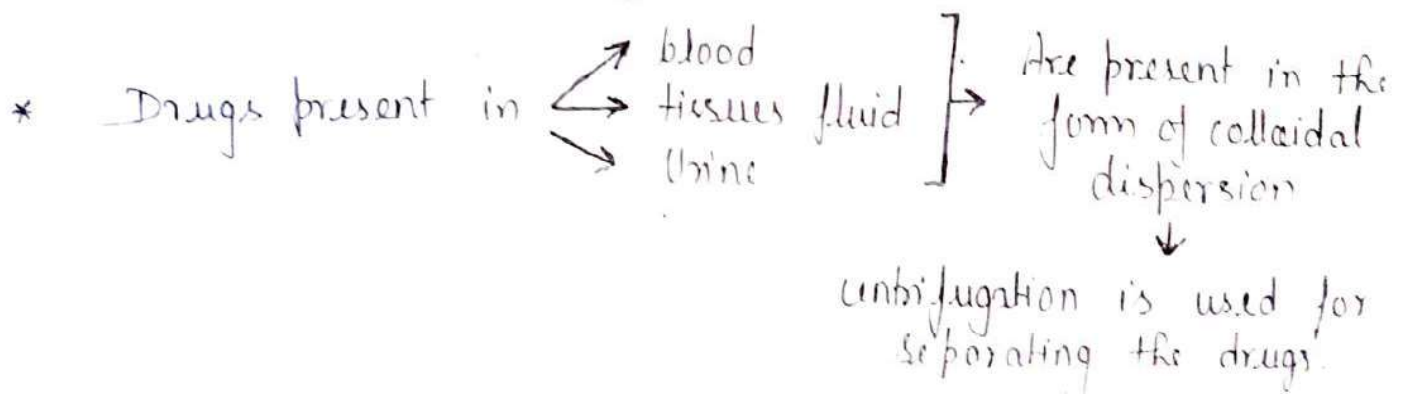 * Drugs present in
blood
tissues fluid
Urine
Are present in the
form of colloidal
dispersion
centrifugation is used for
separating the drugs.